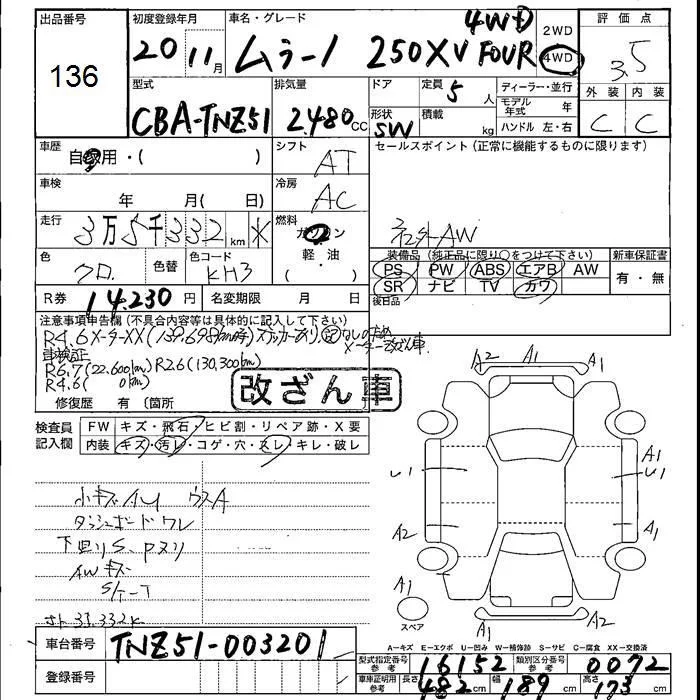 出品番号
136
初度登録年月
20 11月
車名・グレード
ムラーノ 250XV FOUR
4WD
2WD
4WD
評価点
3.5
外装 内装
C C
型式
CBA-TNZ51
排気量
2480cc
ドア
形状
SW
定員
5人
積載
kg
ディーラー・並行
モデル年式 年
ハンドル 左・右
車歴
自家用・( )
シフト
AT
セールスポイント(正常に機能するものに限ります)
社外AW
車検
年 月( 日)
冷房
AC
走行
3万5千332km X
燃料
ガソリン
軽・油
( )
色
クロ
色替
色コード
KH3
装備品(純正品に限り○をつけて下さい)
PS PW ABS エアB AW
SR ナビ TV カワ
新車保証書
有・無
後日品
R券
14,230円
名変期限 月 日
注意事項申告欄(不具合内容等は具体的に記入して下さい)
R4.6メーターXX(139,698km時)ステッカーあり、
車検証
R6.7(22,600km) R2.6(130,300km)
R4.6( 0km)
改ざん車
修復歴 有〔箇所
検査員
記入欄
FW キズ・飛石・ヒビ割・リペア跡・X要
内装 キズ・汚レ・コゲ・穴・スレ・キレ・破レ
小キズAU ウスA
ダッシュボードワレ
下回りS、Pヌリ
AWキズ
S/T
35,332K
車台番号
TNZ51-003201
登録番号
A2 A1 A1
U1
A1
U1
A2
A1
A1
スペア
A1
A2
A−キズ E−エクボ U−凹み W−補修跡 S−サビ C−腐食 XX−交換済
型式指定番号
参考
16152
類別区分番号
参考
0072
車庫証明用
参考
長さ 482cm
幅 189cm
高さ 173cm